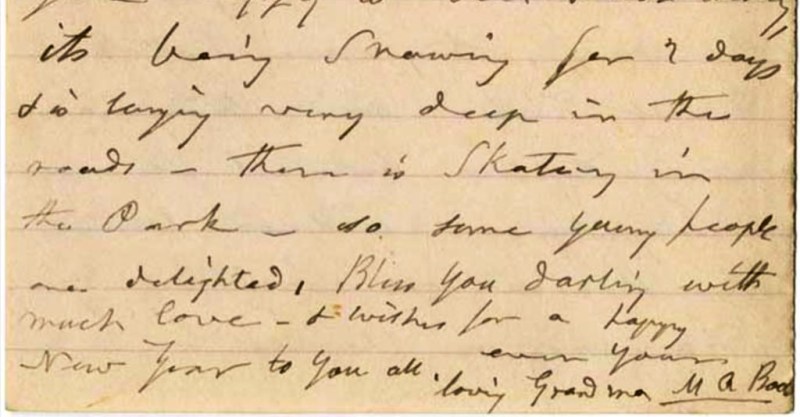 its being Snowing for 2 days
& is laying very deep in the
roads – there is Skating in
the Park – so some young people
are delighted, Bless you darling with
much love – & wishes for a happy
New Year to you all. ever your
loving Grandma M A